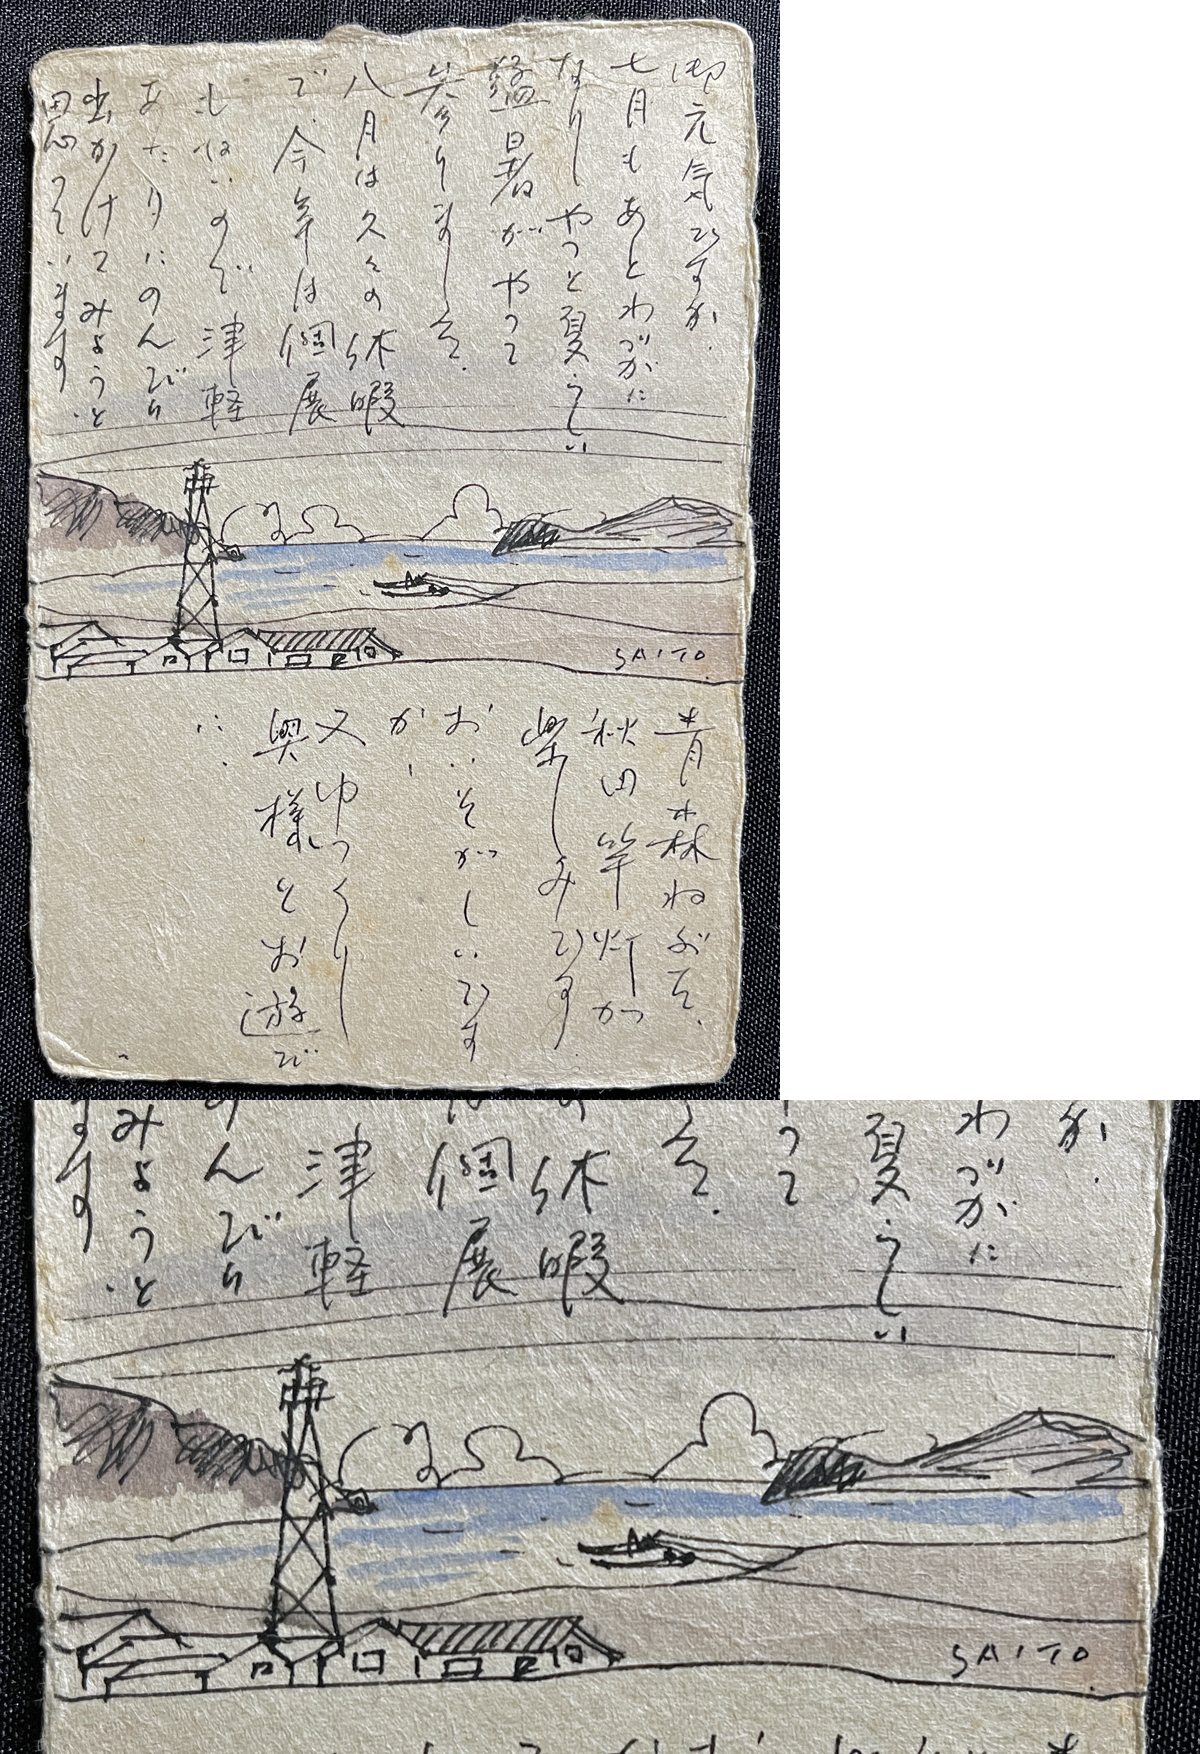 御元気ですか.
七月もあとわづかに
なりしやっと夏らしい
暑がやって
参りました.
八月は久々の休暇
で今年は個展
もないので津軽
あたりにのんびり
出かけてみようと
思っています.
SAITO.
青森ねぶた.
秋田竿灯が
楽しみです.
おいそがしいです
か.
又ゆっくり
奥様とお遊び
に.
か.
わづかに
夏らしい
って
た.
休暇
個展
津軽
のんびり
みようと
ます.
SAITO.